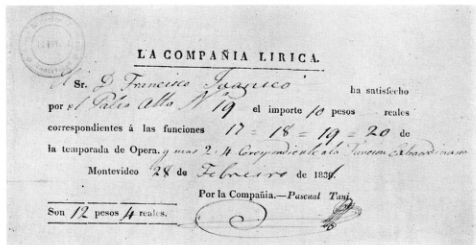 LA COMPAÑIA LIRICA.
El Sr. D. Francisco Juanicó ha satisfecho
por el Palco Alto Nº 19 el importe 10 pesos reales
correspondientes á las funciones 17 = 18 = 19 = 20 de
la temporada de Opera. y mas 2„4 Correspondiente a la Funcion Extraordinaria
Montevideo 28 de Febrero de 183
Por la Compañia.—Pascual Tani
Son 12 pesos 4 reales.